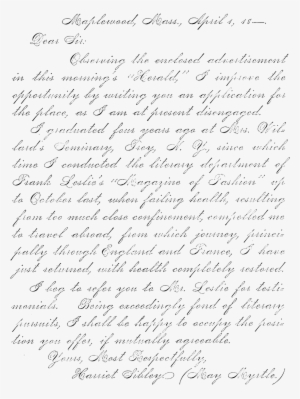 Maplewood, Mass., April 2, 18—.
Dear Sir:
Observing the enclosed advertisement
in this morning's "Herald," I improve the
opportunity by writing you an application for
the place, as I am at present disengaged.
I graduated four years ago at Mrs. Wil
lard's Seminary, Troy, N. Y., since which
time I conducted the literary department of
Frank Leslie's "Magazine of Fashion" up
to October last, when failing health, resulting
from too much close confinement, compelled me
to travel abroad, from which journey, princi
pally through England and France, I have
just returned, with health completely restored.
I beg to refer you to Mr. Leslie for testi
monials. Being exceedingly fond of literary
pursuits, I shall be happy to occupy the posi
tion you offer, if mutually agreeable.
Yours, Most Respectfully,
Harriet Sibley (May Myrtle.)